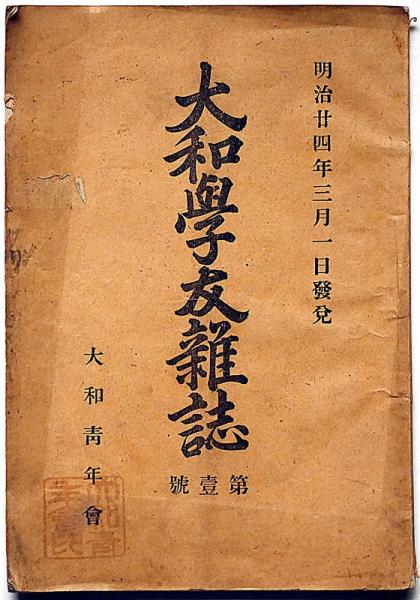 明治廿四年三月一日發兌
大和學友雜誌
第壹號
大和靑年會